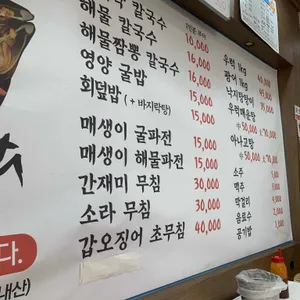 칼국수 10,000
해물 칼국수
해물짬뽕 칼국수 16,000
영양 굴밥 16,000
회덮밥 (+ 바지락탕) 15,000
매생이 굴파전 15,000
매생이 해물파전 15,000
간재미 무침 30,000
소라 무침 30,000
갑오징어 초무침 40,000
우럭 1kg
광어 1kg
우럭매운탕
中 50,000 大 70,000
아나고탕
中 50,000 大 70,000
소주
맥주
막걸리
음료수
공기밥
다.
내산)